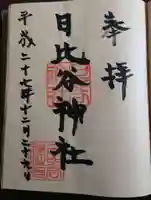 奉拝
日比谷神社
平成二十七年十二月二十九日